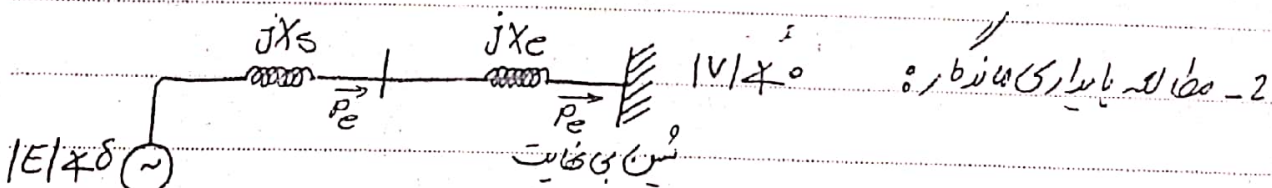 2 - مطالعه پایداری ماندگار :
jXs jXe
Pe Pe |V|∡0
|E|∡δ ~
شین بی نهایت